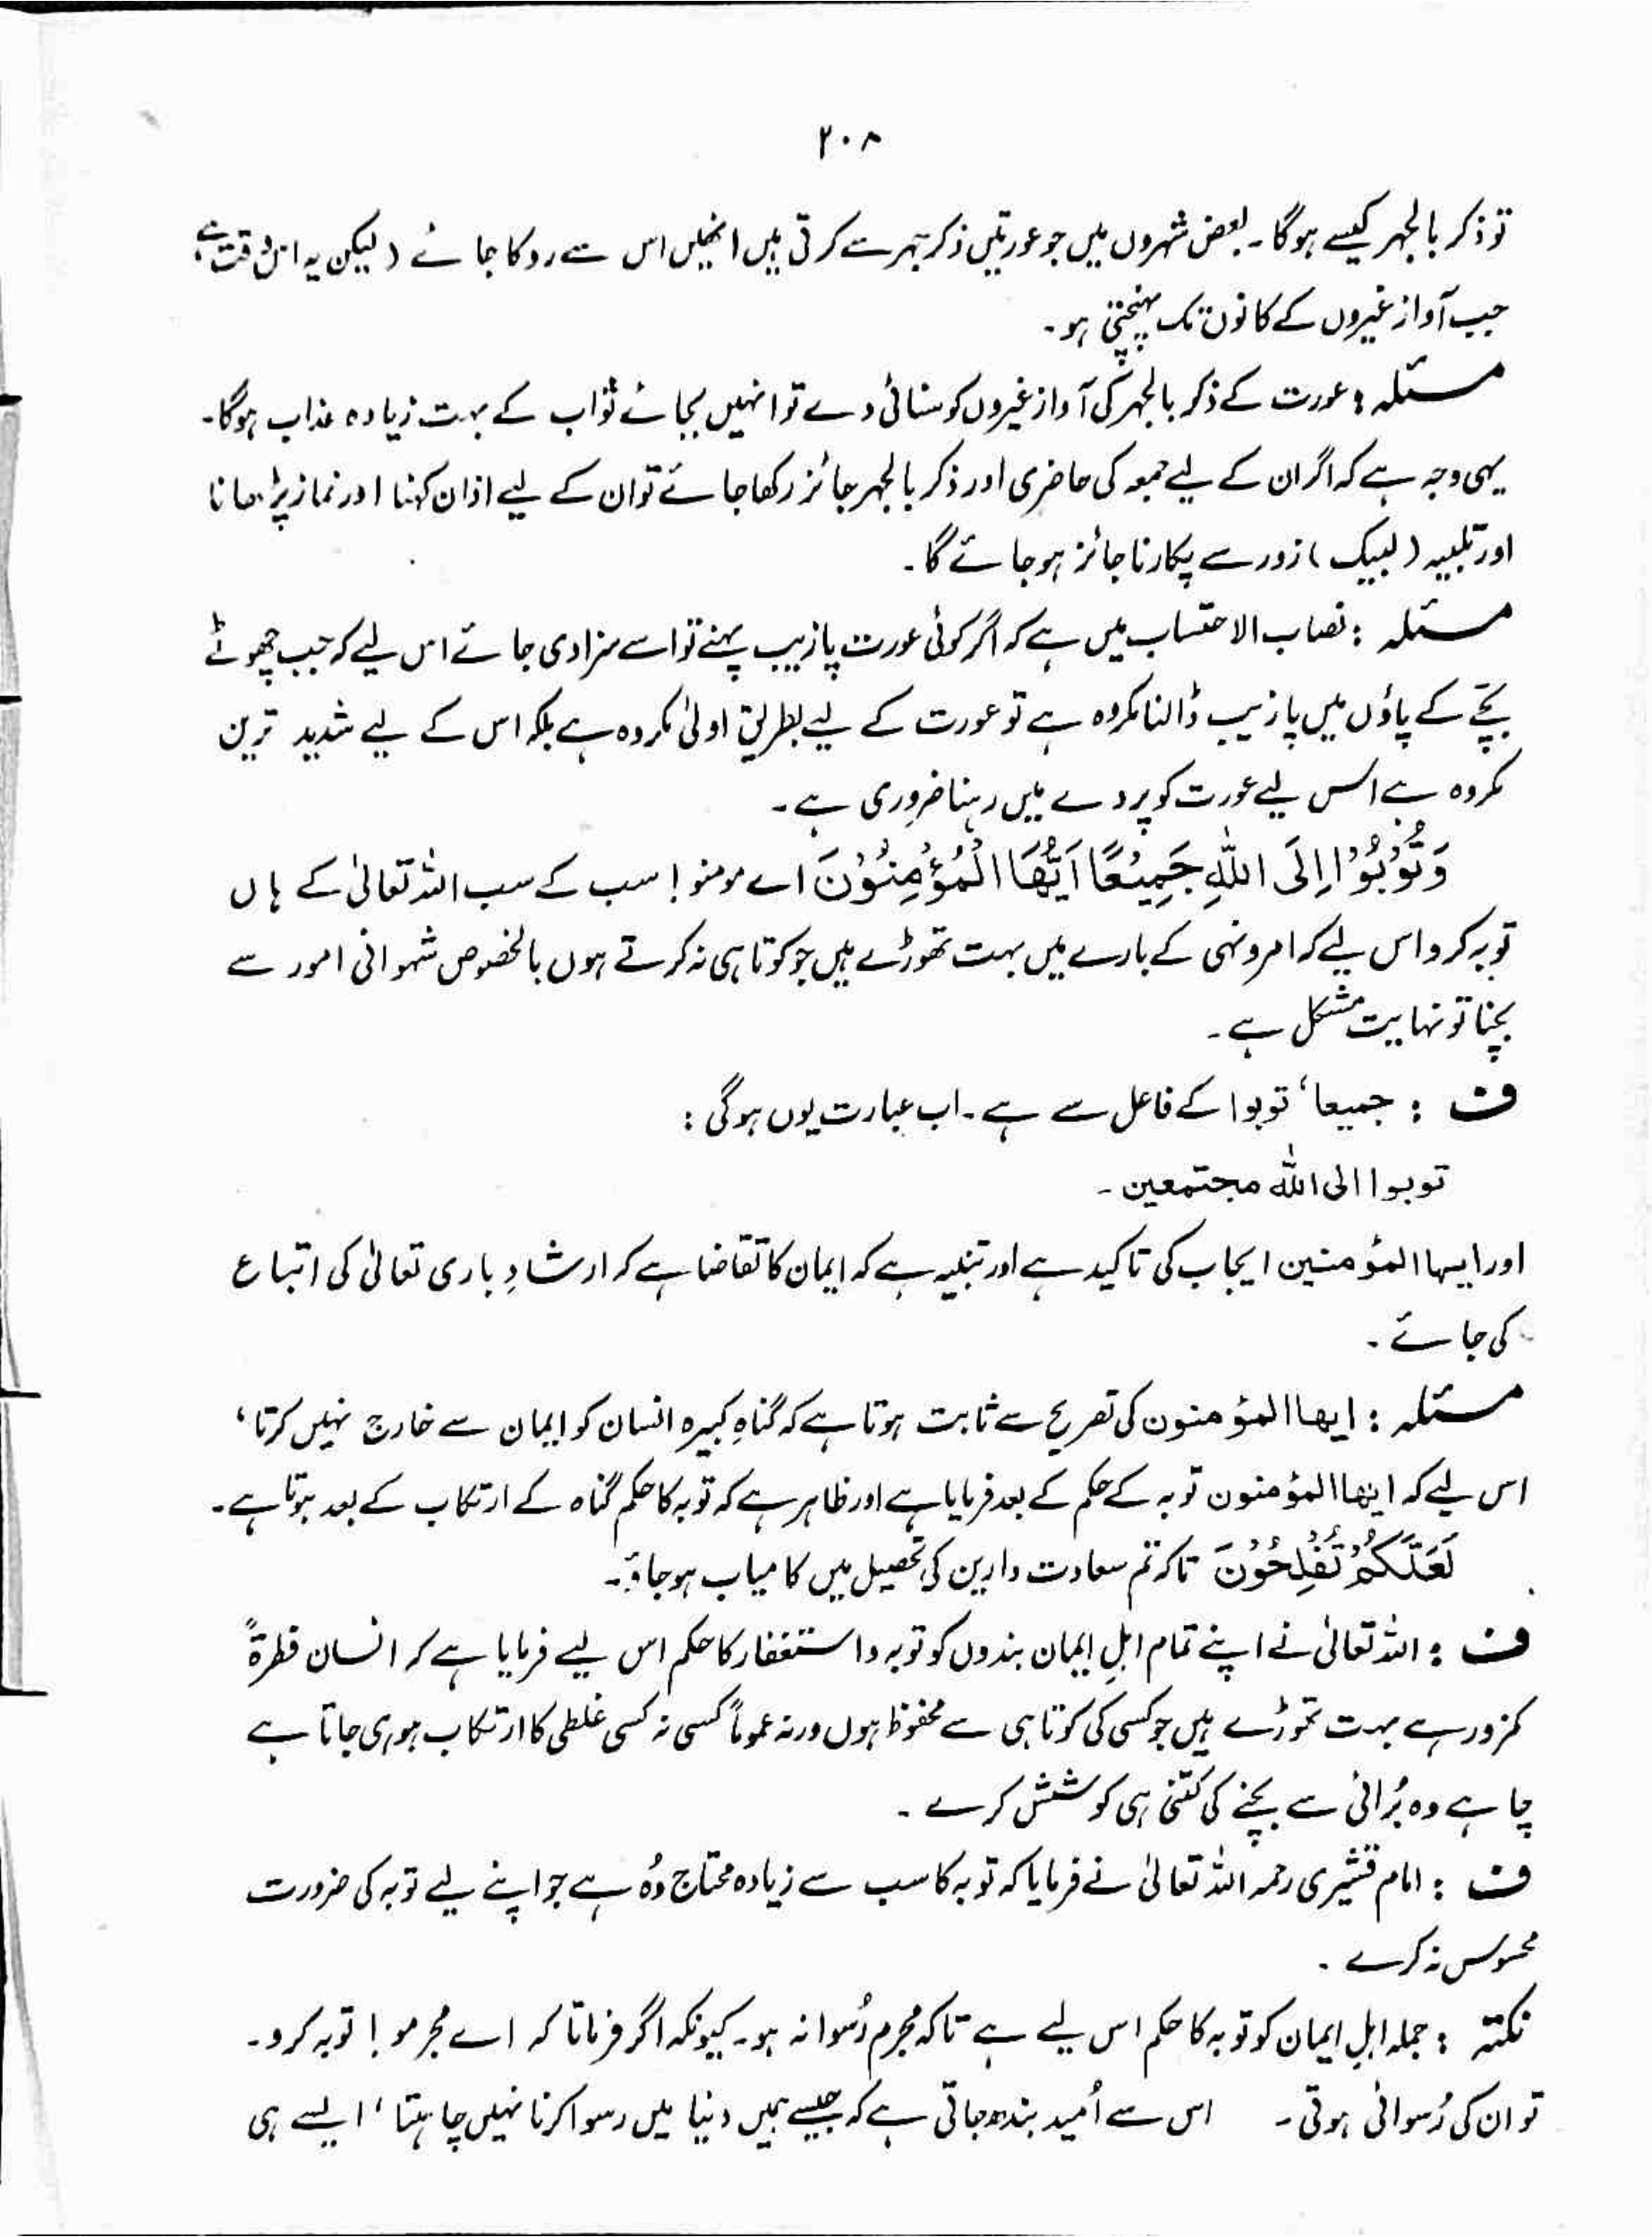 ۲۰۸
تو ذکر بالجہر کیسے ہوگا۔ بعض شہروں میں جو عورتیں ذکر جہر سے کرتی ہیں انھیں اس سے روکا جائے (لیکن یہ اس وقت ہے
جب آواز غیروں کے کانوں تک پہنچتی ہو۔
مسئلہ : عورت کے ذکر بالجہر کی آواز غیروں کو سنائی دے تو انہیں بجائے ثواب کے بہت زیادہ عذاب ہوگا۔
یہی وجہ ہے کہ اگر ان کے لیے جمعہ کی حاضری اور ذکر بالجہر جائز رکھا جائے تو ان کے لیے اذان کہنا اور نماز پڑھانا
اور تلبیہ (لبیک) زور سے پکارنا جائز ہو جائے گا۔
مسئلہ : نصاب الاحتساب میں ہے کہ اگر کوئی عورت پازیب پہنے تو اسے سزا دی جائے اس لیے کہ جب چھوٹے
بچّے کے پاؤں میں پازیب ڈالنا مکروہ ہے تو عورت کے لیے بطریق اولیٰ مکروہ ہے بلکہ اس کے لیے شدید ترین
مکروہ ہے اس لیے عورت کو پردے میں رہنا ضروری ہے۔
وَتُوْبُوْٓا اِلَی اللّٰہِ جَمِیْعًا اَیُّھَا الْمُؤْمِنُوْنَ اے مومنو! سب کے سب اللہ تعالیٰ کے ہاں
توبہ کرو اس لیے کہ امر و نہی کے بارے میں بہت تھوڑے ہیں جو کوتاہی نہ کرتے ہوں بالخصوص شہوانی امور سے
بچنا تو نہایت مشکل ہے۔
ف : جمیعا، توبوا کے فاعل سے ہے۔ اب عبارت یوں ہوگی :
توبوا الی اللہ مجتمعین۔
اور ایہا المؤمنین ایجاب کی تاکید ہے اور تنبیہ ہے کہ ایمان کا تقاضا ہے کہ ارشادِ باری تعالیٰ کی اتباع
کی جائے۔
مسئلہ : ایھا المؤمنون کی تصریح سے ثابت ہوتا ہے کہ گناہِ کبیرہ انسان کو ایمان سے خارج نہیں کرتا،
اس لیے کہ ایھا المؤمنون توبہ کے حکم کے بعد فرمایا ہے اور ظاہر ہے کہ توبہ کا حکم گناہ کے ارتکاب کے بعد ہوتا ہے۔
لَعَلَّکُمْ تُفْلِحُوْنَ تاکہ تم سعادت دارین کی تحصیل میں کامیاب ہو جاؤ۔
ف : اللہ تعالیٰ نے اپنے تمام اہلِ ایمان بندوں کو توبہ و استغفار کا حکم اس لیے فرمایا ہے کہ انسان فطرۃً
کمزور ہے بہت تھوڑے ہیں جو کسی کی کوتاہی سے محفوظ ہوں ورنہ عموماً کسی نہ کسی غلطی کا ارتکاب ہو ہی جاتا ہے
چاہے وہ بُرائی سے بچنے کی کتنی ہی کوشش کرے۔
ف : امام قشیری رحمہ اللہ تعالیٰ نے فرمایا کہ توبہ کا سب سے زیادہ محتاج وُہ ہے جو اپنے لیے توبہ کی ضرورت
محسوس نہ کرے۔
نکتہ : جملہ اہلِ ایمان کو توبہ کا حکم اس لیے ہے تاکہ مجرم رُسوا نہ ہو۔ کیونکہ اگر فرماتا کہ اے مجرمو! توبہ کرو۔
تو ان کی رُسوائی ہوتی۔ اس سے اُمید بندھ جاتی ہے کہ جیسے ہمیں دنیا میں رسوا کرنا نہیں چاہتا، ایسے ہی